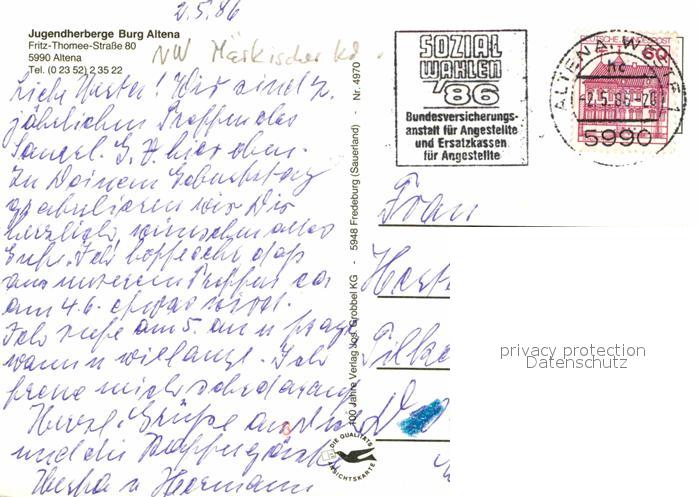 2.5.86
Jugendherberge Burg Altena
Fritz-Thomee-Straße 80
5990 Altena
Tel. (0 23 52) 2 35 22
NW Märkischer Kr.
Liebe Herta! Wir sind z.
jährlichen Treffen des
hier oben.
Zu Deinem Geburtstag
gratulieren wir Dir
herzlich, wünschen alles
Gute. Ich hoffe sehr, daß
aus unserem Treffen
am 4.6. etwas wird.
Ich rufe am 5. an u. frage
wann u. wie lange. Ich
freue mich sehr darauf.
Herzl. Grüße
und die
Hertha u. Hermann
100 Jahre Verlag Jos. Grobbel KG - 5948 Fredeburg (Sauerland) - Nr. 4970
DIE QUALITÄTS
ANSICHTSKARTE
SOZIAL
WAHLEN
'86
Bundesversicherungs-
anstalt für Angestellte
und Ersatzkassen
für Angestellte
DEUTSCHE BUNDESPOST
60
ALTENA, WESTF
-2.5.86-20
5990
Frau
privacy protection
Datenschutz